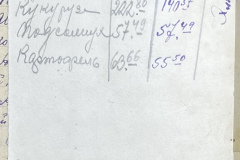 Кукуруза 222.80 140.35
Подсолнух 57.49 57.49
Картофель 63.66 55.50